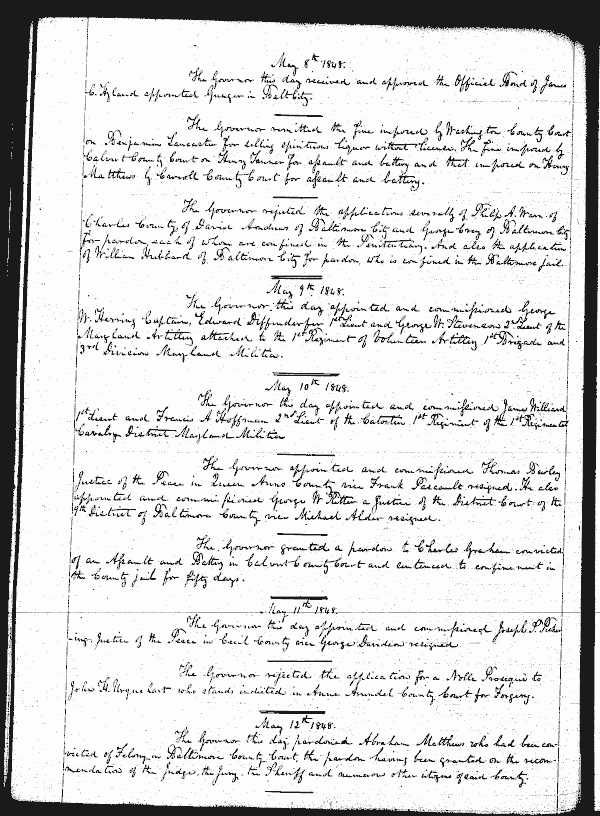 May 8th 1848.
The Governor this day received and approved the Official Bond of James
C. Hyland appointed Guager in Balt City.
The Governor remitted the fine imposed by Washington County Court
on Benjamin Lancaster for selling spirituous liquor without license. The fine imposed by
Calvert County Court on Henry Turner for assault and battery and that imposed on Henry
Matthews by Carroll County Court for assault and battery.
The Governor rejected the applications severally of Philip A. of
Charles County, of David Andrews of Baltimore City and George Croy of Baltimore City
for pardon, each of whom are confined in the Penitentiary. And also the application
of William Hubbard of Baltimore City for pardon, who is confined in the Baltimore jail.
May 9th 1848.
The Governor this day appointed and commissioned George
W. Herring Captain, Edward Diffenderfer 1st Lieut and George W. Stevenson 2d Lieut of the
Maryland Artillery attached to the 1st Regiment of Volunteer Artillery 1st Brigade and
3rd Division Maryland Militia.
May 10th 1848.
The Governor this day appointed and commissioned James Williard
1st Lieut and Francis A Hoffman 2nd Lieut of the Catoctin 1st Regiment of the 1st Regimental
Cavalry District Maryland Militia
The Governor appointed and commissioned Thomas Bewley
Justice of the Peace in Queen Anns County vice Frank Pascault resigned. He also
appointed and commissioned George W. Ritter a Justice of the District Court of the
9th District of Baltimore County vice Michael Alder resigned.
The Governor granted a pardon to Charles Graham convicted
of an Assault and Battery in Calvert County Court and sentenced to confinement in
the County jail for fifty days.
May 11th 1848.
The Governor this day appointed and commissioned Joseph P.
-ing, Justice of the Peace in Cecil County vice George Davidson resigned
The Governor rejected the application for a Nolle Prosequi to
John H. Urquehart who stands indicted in Anne Arundel County Court for Forgery.
May 12th 1848.
The Governor this day pardoned Abraham Matthews who had been con-
victed of Felony in Baltimore County Court, the pardon having been granted on the recom-
mendation of the Judge, the Jury, the Sheriff and numerous other citizens of said County.